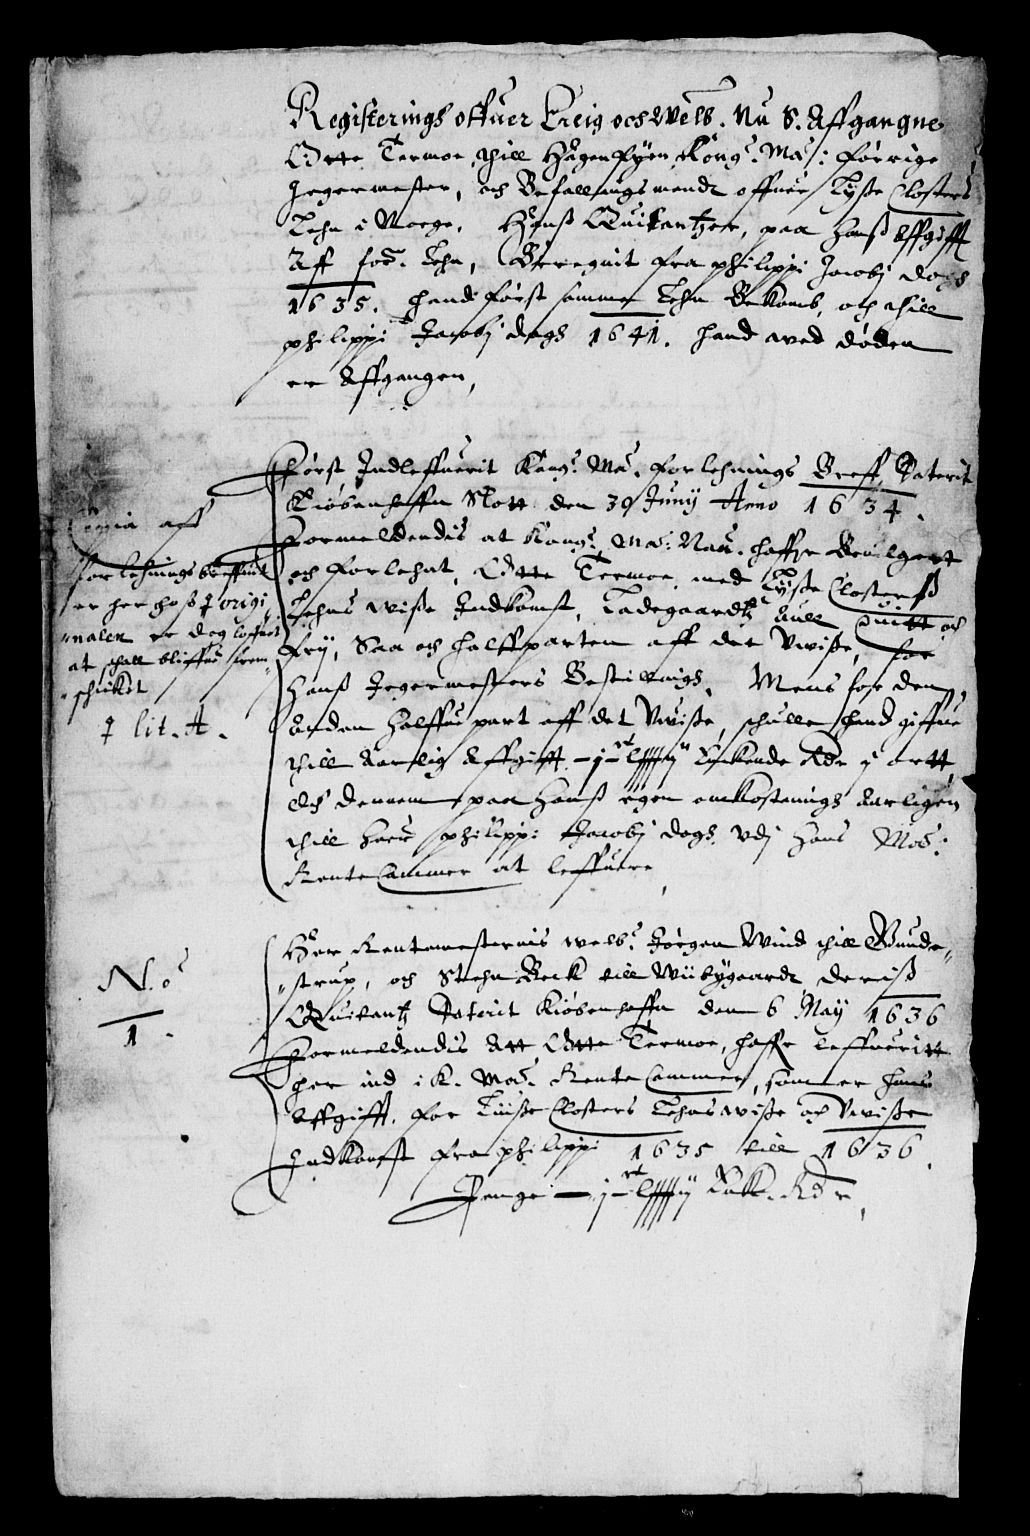 Registerings offuer Ereig och Welb. Nu S. Affgangne
Otte Termoe, thill Hagenskjøen, Kong: Ma: Forrige
Jegermester, och Befallingsmandt offuer Lysse Closters
Lehn i Norge. Hanss Quitantzer, paa hanss Affgifft
Aff for: Lehn, Beregnit fra philippi Jacobj dags
1635. hand først samme Lehn Bekomb, och thill
philippi Jacobj dags 1641. hand wed døden
er Affgangen,
Først Indleffuerit Kong: Ma: Forlehnings Breff, Daterit
Kiøbenhaffn Slott den 30 Junij Anno 1634.
Formeldendis at Kong: Ma: Naa. haffr Beuilgett
och Forlehnt, Otte Termoe, med Lysse Closterss
Lehns wisse Indkomst, Ladegaardtz Aull Quitt och
Frij, Saa och halffparten aff det Vwisse, for
Hanss Jegermesters Bestillings, Mens for den
Anden halffue part aff det Vwisse, schulle hand giffue
thill Aarlig Affgifft
Rdr j ortt,
Och dennem paa hanss egen omkostnings Aarligen
thill huer philippi Jacobj dags, vdj Hans Ma:
Rente Cammer at leffuere,
Copia aff
forlehnings breffuit
er her hoss origi,
nalen er dog loffuet
at schall bliffue frem,
schickit
lit. A.
Her Rentemesternis welb: Jørgen Wind thill Gunde,
strup, och Stehn Beck till Wiibygaardt deriss
Quitantz Daterit Kiøbenhaffn den 6 Maij 1636
Formeldendis Att Otte Termoe, haffr leffueritt
her ind i K. Ma: Rente Cammer, som er hans
Affgifft, for Liisse Closters Lehns wisse och Vwisse
Indkomst fra philippi 1635 till 1636.
Penge
No
1.